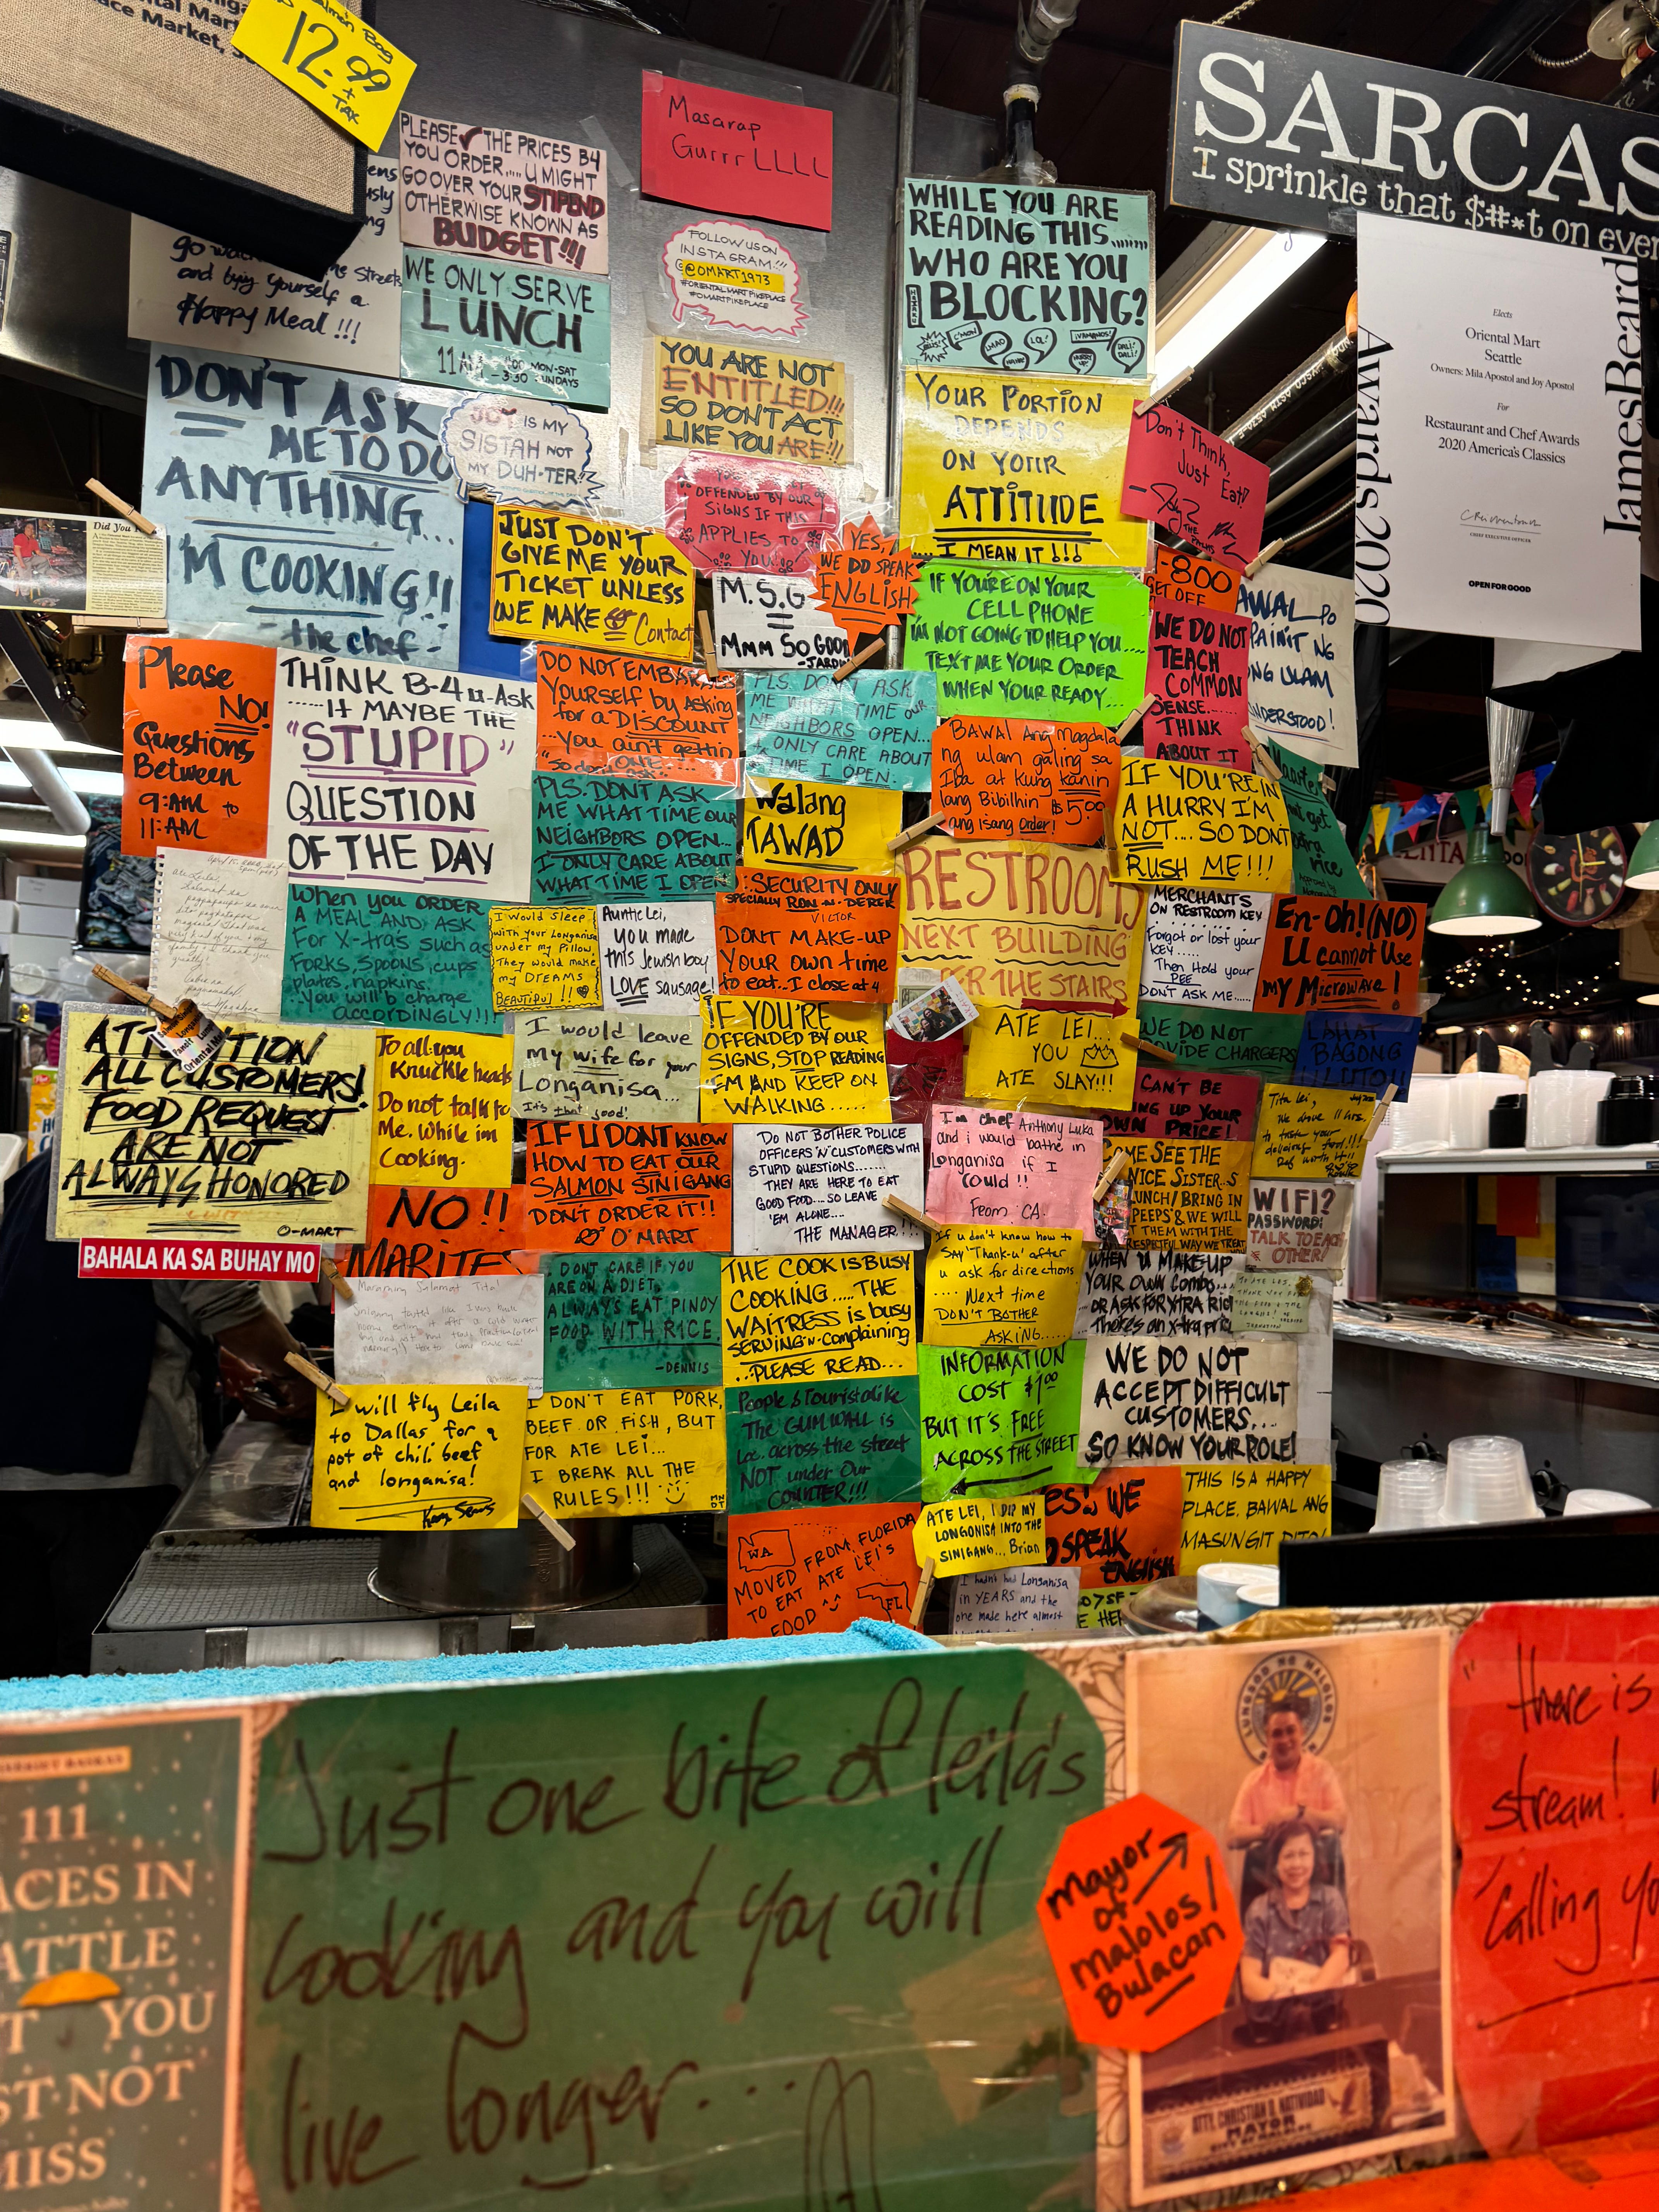 12.99
+
TAX
PLEASE ✓ THE PRICES B4
YOU ORDER.... U MIGHT
GO OVER YOUR STIPEND
OTHERWISE KNOWN AS
BUDGET!!!
Masarap
GurrrLLLL
SARCAS
I sprinkle that $#*t on ever
FOLLOW US ON
INSTAGRAM!!!
@OMART1973
#ORIENTALMARTPIKEPLACE
#OMARTPIKEPLACE
WHILE YOU ARE
READING THIS........
WHO ARE YOU
BLOCKING?
C'MON!
LMAO
LOL!
¡VAMANOS!
DALI!
DALI!
and buy yourself a
Happy Meal !!!
WE ONLY SERVE
LUNCH
Elects
Oriental Mart
Seattle
Owners: Mila Apostol and Joy Apostol
For
Restaurant and Chef Awards
2020 America's Classics
CHIEF EXECUTIVE OFFICER
OPEN FOR GOOD
JamesBeard
Awards2020
YOU ARE NOT
ENTITLED!!!
SO DON'T ACT
LIKE YOU ARE!!!
DON'T ASK
ME TO DO
ANYTHING...
I'M COOKING!!
- the chef -
JOY IS MY
SISTAH NOT
MY DUH-TER!
YOUR PORTION
DEPENDS
ON YOUR
ATTITUDE
I MEAN IT!!!
Don't Think,
Just Eat!
OFFENDED BY OUR
SIGNS IF THIS
APPLIES TO
YOU!
Did You
JUST DON'T
GIVE ME YOUR
TICKET UNLESS
WE MAKE Contact
M.S.G
Mmm SO GOOD
YES,
WE DO SPEAK
ENGLISH
IF YOU'RE ON YOUR
CELL PHONE
I'M NOT GOING TO HELP YOU....
TEXT ME YOUR ORDER
WHEN YOUR READY...
-800
GET OFF
WE DO NOT
TEACH
COMMON
SENSE.....
THINK
ABOUT IT
Please
NO!
Questions
Between
9:AM to
11:AM
THINK B-4 u-Ask
......It MAYBE THE
"STUPID"
QUESTION
OF THE DAY
DO NOT EMBARASS
Yourself by Asking
for a DISCOUNT
...You ain't gettin
ONE...
"So don't ask"
PLS. DON'T ASK
ME WHAT TIME OUR
NEIGHBORS OPEN...
I ONLY CARE ABOUT
TIME I OPEN.
BAWAL Ang Magdala
ng ulam galing sa
Iba at Kung kanin
lang Bibilhin $5.00
ang Isang Order!
IF YOU'RE IN
A HURRY I'M
NOT.... SO DON'T
RUSH ME!!!
PLS. DON'T ASK
ME WHAT TIME OUR
NEIGHBORS OPEN...
I ONLY CARE ABOUT
WHAT TIME I OPEN
Walang
TAWAD
RESTROOM
NEXT BUILDING
THE STAIRS
When you ORDER
A MEAL AND ASK
For X-tra's such as
FORKS, SPOONS, cups
plates, napkins.
You will b charge
accordingly!!!
I would sleep
with your Longanisa
under my Pillow
They would make
my DREAMS
BEAUTIFUL!!
Auntie Lei,
you made
this Jewish boy
LOVE sausage!
SECURITY ONLY
SPECIALLY RON -N- DEREK
VICTOR
DONT MAKE-UP
YOUR OWN time
to eat..I close at 4
MERCHANTS
ON RESTROOM KEY
Forgot or lost your
KEY.....
Then Hold your
PEE
DON'T ASK ME.....
En-Oh! (NO)
U cannot Use
my Microwave!
ATTENTION
ALL CUSTOMERS!
FOOD REQUEST
ARE NOT
ALWAYS HONORED
O-MART
BAHALA KA SA BUHAY MO
To all you
Knuckle heads
Do not talk to
Me. While im
Cooking.
I would leave
My wife for your
Longanisa...
It's that good!
IF YOU'RE
OFFENDED BY OUR
SIGNS, STOP READING
'EM AND KEEP ON
WALKING.....
ATE LEI...
YOU
ATE SLAY!!!
WE DO NOT
PROVIDE CHARGERS
LAHAT
BAGONG
LUTO!!
CAN'T BE
OWN PRICE!
NO!!
MARITES
IF U DON'T KNOW
HOW TO EAT OUR
SALMON SINIGANG
DON'T ORDER IT!!
O'MART
DO NOT BOTHER POLICE
OFFICERS 'N' CUSTOMERS WITH
STUPID QUESTIONS.......
THEY ARE HERE TO EAT
GOOD FOOD.... SO LEAVE
'EM ALONE....
THE MANAGER!!
Im chef Anthony Luka
and i would bathe in
Longanisa if I
Could!!
From CA.
COME SEE THE
NICE SISTER..S
LUNCH/BRING IN
PEEPS' & WE WILL
THEM WITH THE
RESPECTFUL WAY WE TREAT
WIFI?
PASSWORD:
TALK TO EACH
OTHER!
DON'T CARE IF YOU
ARE ON A DIET,
ALWAYS EAT PINOY
FOOD WITH RICE.
-DENNIS
THE COOK IS BUSY
COOKING.....THE
WAITRESS is busy
SERVING 'n' complaining
..PLEASE READ...
If u don't know how to
SAY "Thank-u" after
u ask for directions
.... Next time
DON'T BOTHER
ASKING.....
WHEN U MAKE-UP
YOUR OWN Combo...
OR ASK FOR XTRA RICE
There's an x-tra price
I will fly Leila
to Dallas for a
pot of chili beef
and longanisa!
I DON'T EAT PORK,
BEEF OR FISH, BUT
FOR ATE LEI...
I BREAK ALL THE
RULES!!!
People & Tourist alike
The GUM WALL is
Loc. across the street
NOT under Our
COUNTER!!!
INFORMATION
COST $1.00
BUT IT'S FREE
ACROSS THE STREET
WE DO NOT
ACCEPT DIFFICULT
CUSTOMERS...
SO KNOW YOUR ROLE!
WA
MOVED FROM FLORIDA
TO EAT ATE LEI'S
FOOD
FL
ATE LEI, I DIP MY
LONGONISA INTO THE
SINIGANG... Brian
YES!, WE
SPEAK
ENGLISH
THIS IS A HAPPY
PLACE. BAWAL ANG
MASUNGIT DITO!
I hadn't had Longanisa
in YEARS and the
one made here almost
111
PLACES IN
SEATTLE
THAT YOU
MUST NOT
MISS
Just one bite of leila's
cooking and you will
live longer....
mayor
of
malolos
Bulacan
LUNGSOD NG MALOLOS
ATTY. CHRISTIAN D. NATIVIDAD
MAYOR
"there is
stream!
calling yo